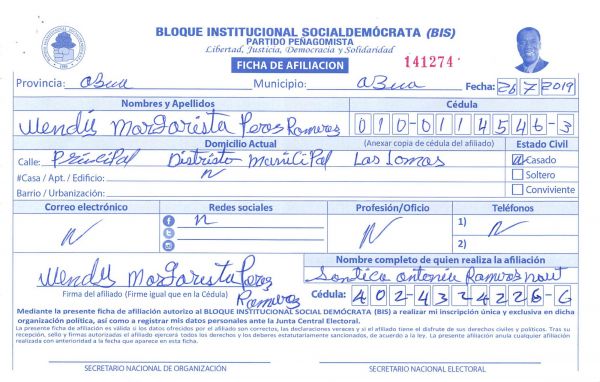 BLOQUE INSTITUCIONAL SOCIALDEMÓCRATA (BIS)
PARTIDO PEÑAGOMISTA
Libertad, Justicia, Democracia y Solidaridad
FICHA DE AFILIACION 141274
Provincia: aBua Municipio: aBua Fecha: 26 7 2019
Nombres y Apellidos Cédula
Wendy Margarista Peres Ramires 010-0114546-3
Domicilio Actual (Anexar copia de cédula del afiliado) Estado Civil
Calle: Principal Distristo Municipal Las Lomas Casado
#Casa / Apt. / Edificio: N Soltero
Barrio / Urbanización: Conviviente
Correo electrónico Redes sociales Profesión/Oficio Teléfonos
N N N 1) N
2)
Nombre completo de quien realiza la afiliación
Wendy Margarista Peres Ramires
Antonia Ramires
Firma del afiliado (Firme igual que en la Cédula) Cédula: 402-4324226-6
Mediante la presente ficha de afiliación autorizo al BLOQUE INSTITUCIONAL SOCIAL DEMÓCRATA (BIS) a realizar mi inscripción única y exclusiva en dicha
organización política, así como a registrar mis datos personales ante la Junta Central Electoral.
La presente ficha de afiliación es válida si los datos ofrecidos por el afiliado son correctos, las declaraciones veraces y si el afiliado tiene el disfrute de sus derechos civiles y políticos. Tras su
recepción, sello y firmas autorizadas el afiliado ejercerá todos los derechos y los deberes estatutariamente sancionados, de acuerdo a la ley. La presente afiliación anula cualquier afiliación
realizada con anterioridad a la fecha que aparece en esta ficha.
SECRETARIO NACIONAL DE ORGANIZACIÓN SECRETARIO NACIONAL ELECTORAL